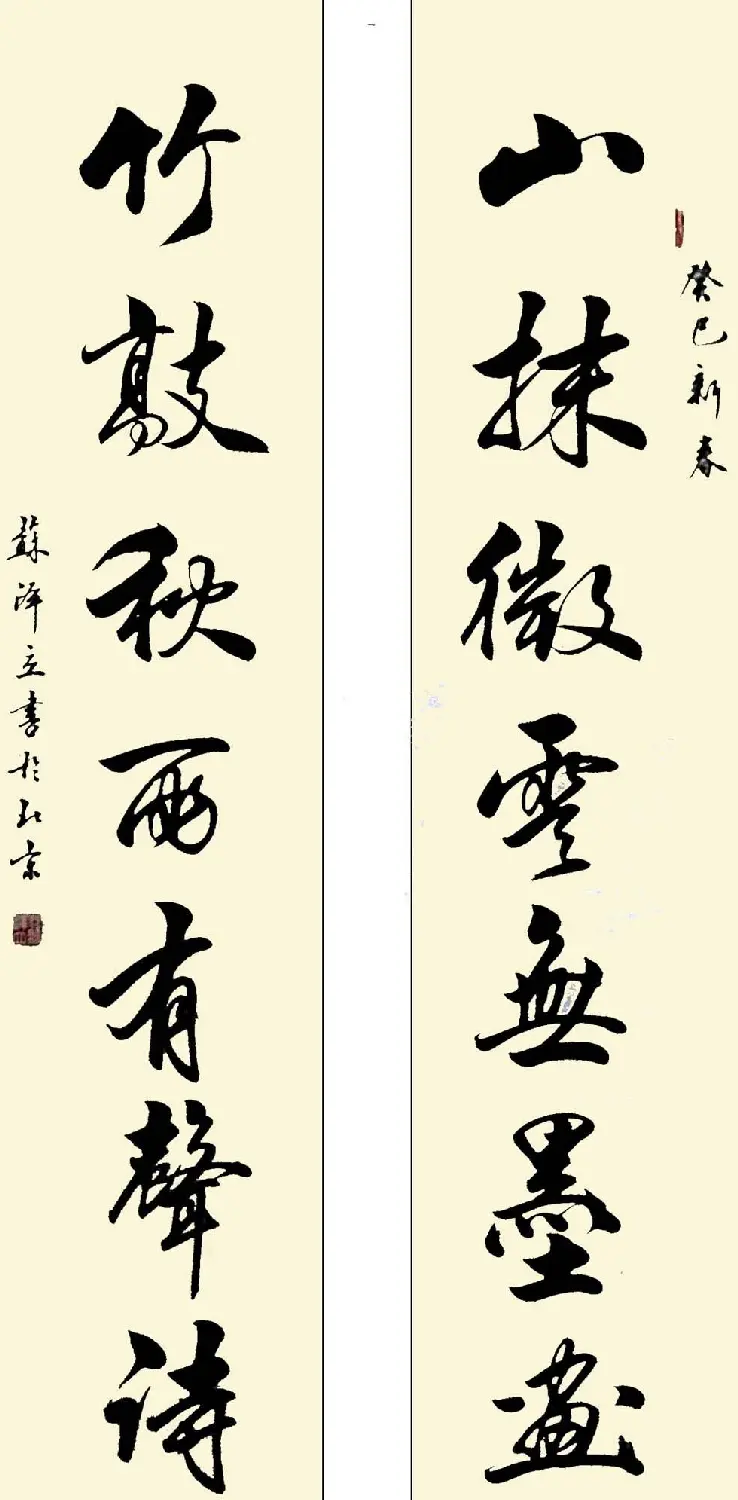 癸巳新春
山抹微雲無墨畫
竹敲秋雨有聲詩
蘇澤立書於北京